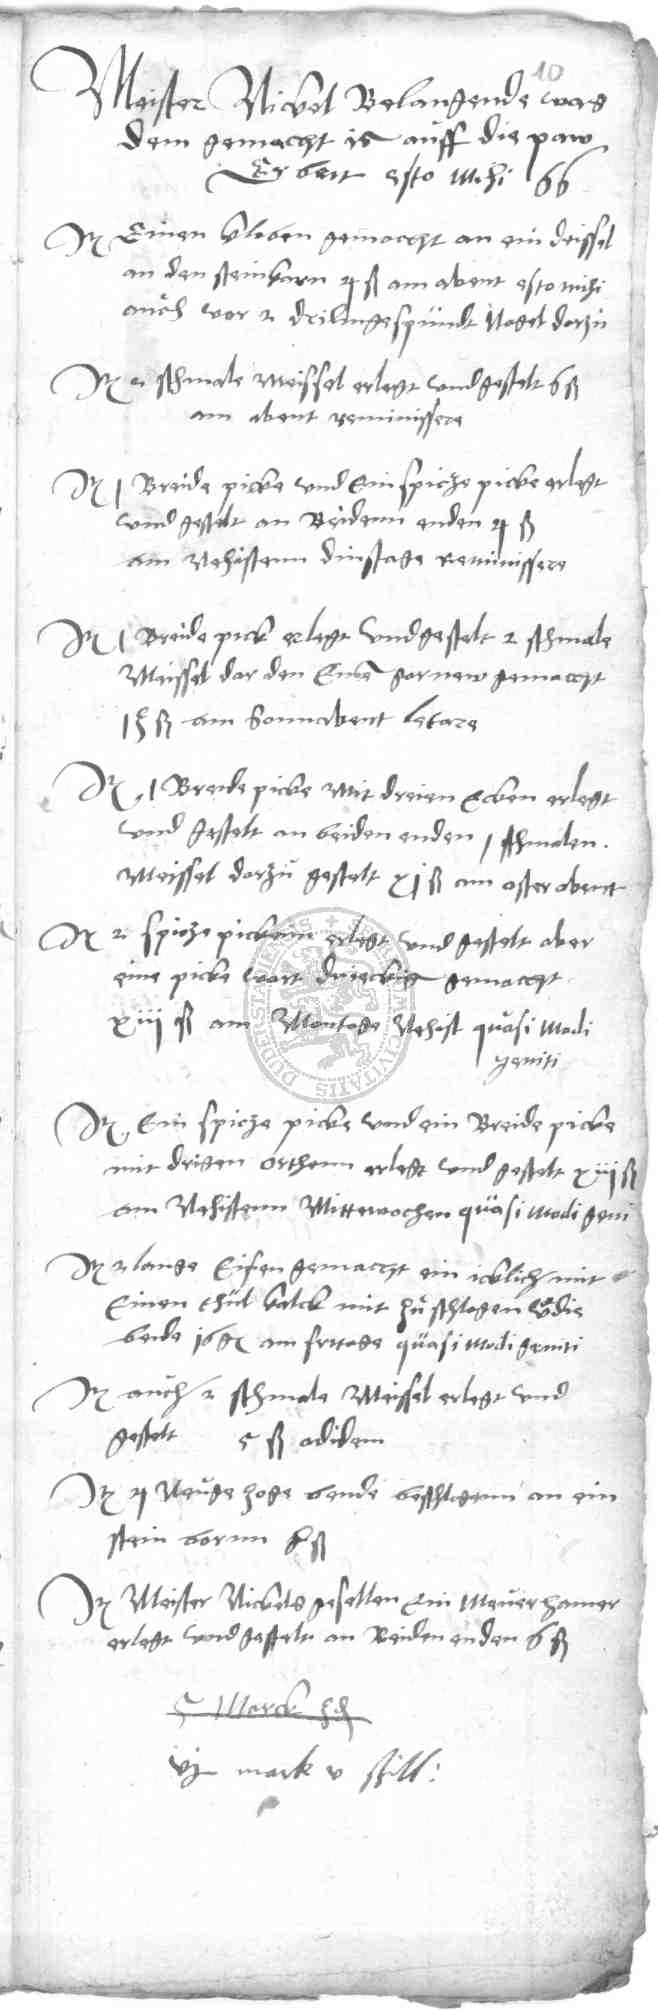 10
Meister Nickel Belangende was
dem gemacht is auff die paw
Erbeit esto mihi 66
It Einen kloben gemacht an ein deissel
an den steinkarn 4 ß am abent esto mihi
auch vor 2 drilingespundt Nagel darzu
It 2 schmale Meissel erlegt und gestelt 6 ß
am abent reminissere
It 1 Breide picke und Ein spicze picke erlegt
und gestelt an Beidenn enden 4 ß
am Nehistenn dinstage Reminissere
It 1 Breide pick erlegt und gestelt 2 schmale
Meissel dar den Einen gar new gemacht
ß am Sonnabent letare
It 1 Breide picke Mit dreien Ecken erlegt
und gestelt an beiden enden 1 schmalen
Meissel darzu gestelt xj ß am osterabent
It 2 spicze pickenn erlegt und gestelt aber
eine picke wart drieckig gemacht
xiij ß am Montage Nehist quasi modi
geniti
It Ein spicze picke und ein Breide picke
mit drigen orthenn erlegt und gestelt xiij ß
am Nehistenn Mittewochen quasi modi geni
It 2 lange Eisen gemacht ein icklich mit
Einen kalck mit zu schlagen die
beide 16 am fritage quasi modi geniti
It auch 2 schmale Meissel erlegt und
gestelt 5 ß adidem
It 4 Neuge hoge bende beschlagenn an ein
stein born ß
It Meister Nickels gesellen Ein Meuerhamer
erlegt und gestelt an Beiden enden 6 ß
5 Marck
vj mark v ßill:
DUDERSTADIENSIS CIVITATIS